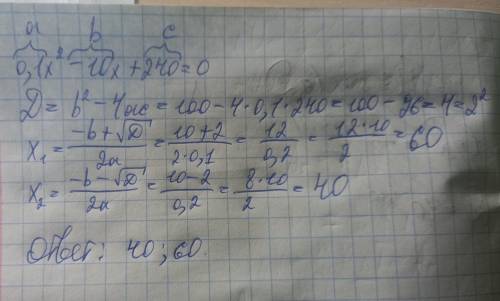 a b c
0,1x² - 10x + 240 = 0
Д = b² - 4ac = 100 - 4·0,1·240 = 100 - 96 = 4 = 2²
x₁ = (-b + √Д)/2a = (10+2)/(2·0,1) = 12/0,2 = (12·10)/2 = 60
x₂ = (-b - √Д)/2a = (10-2)/0,2 = (8·10)/2 = 40
Ответ: 40; 60.